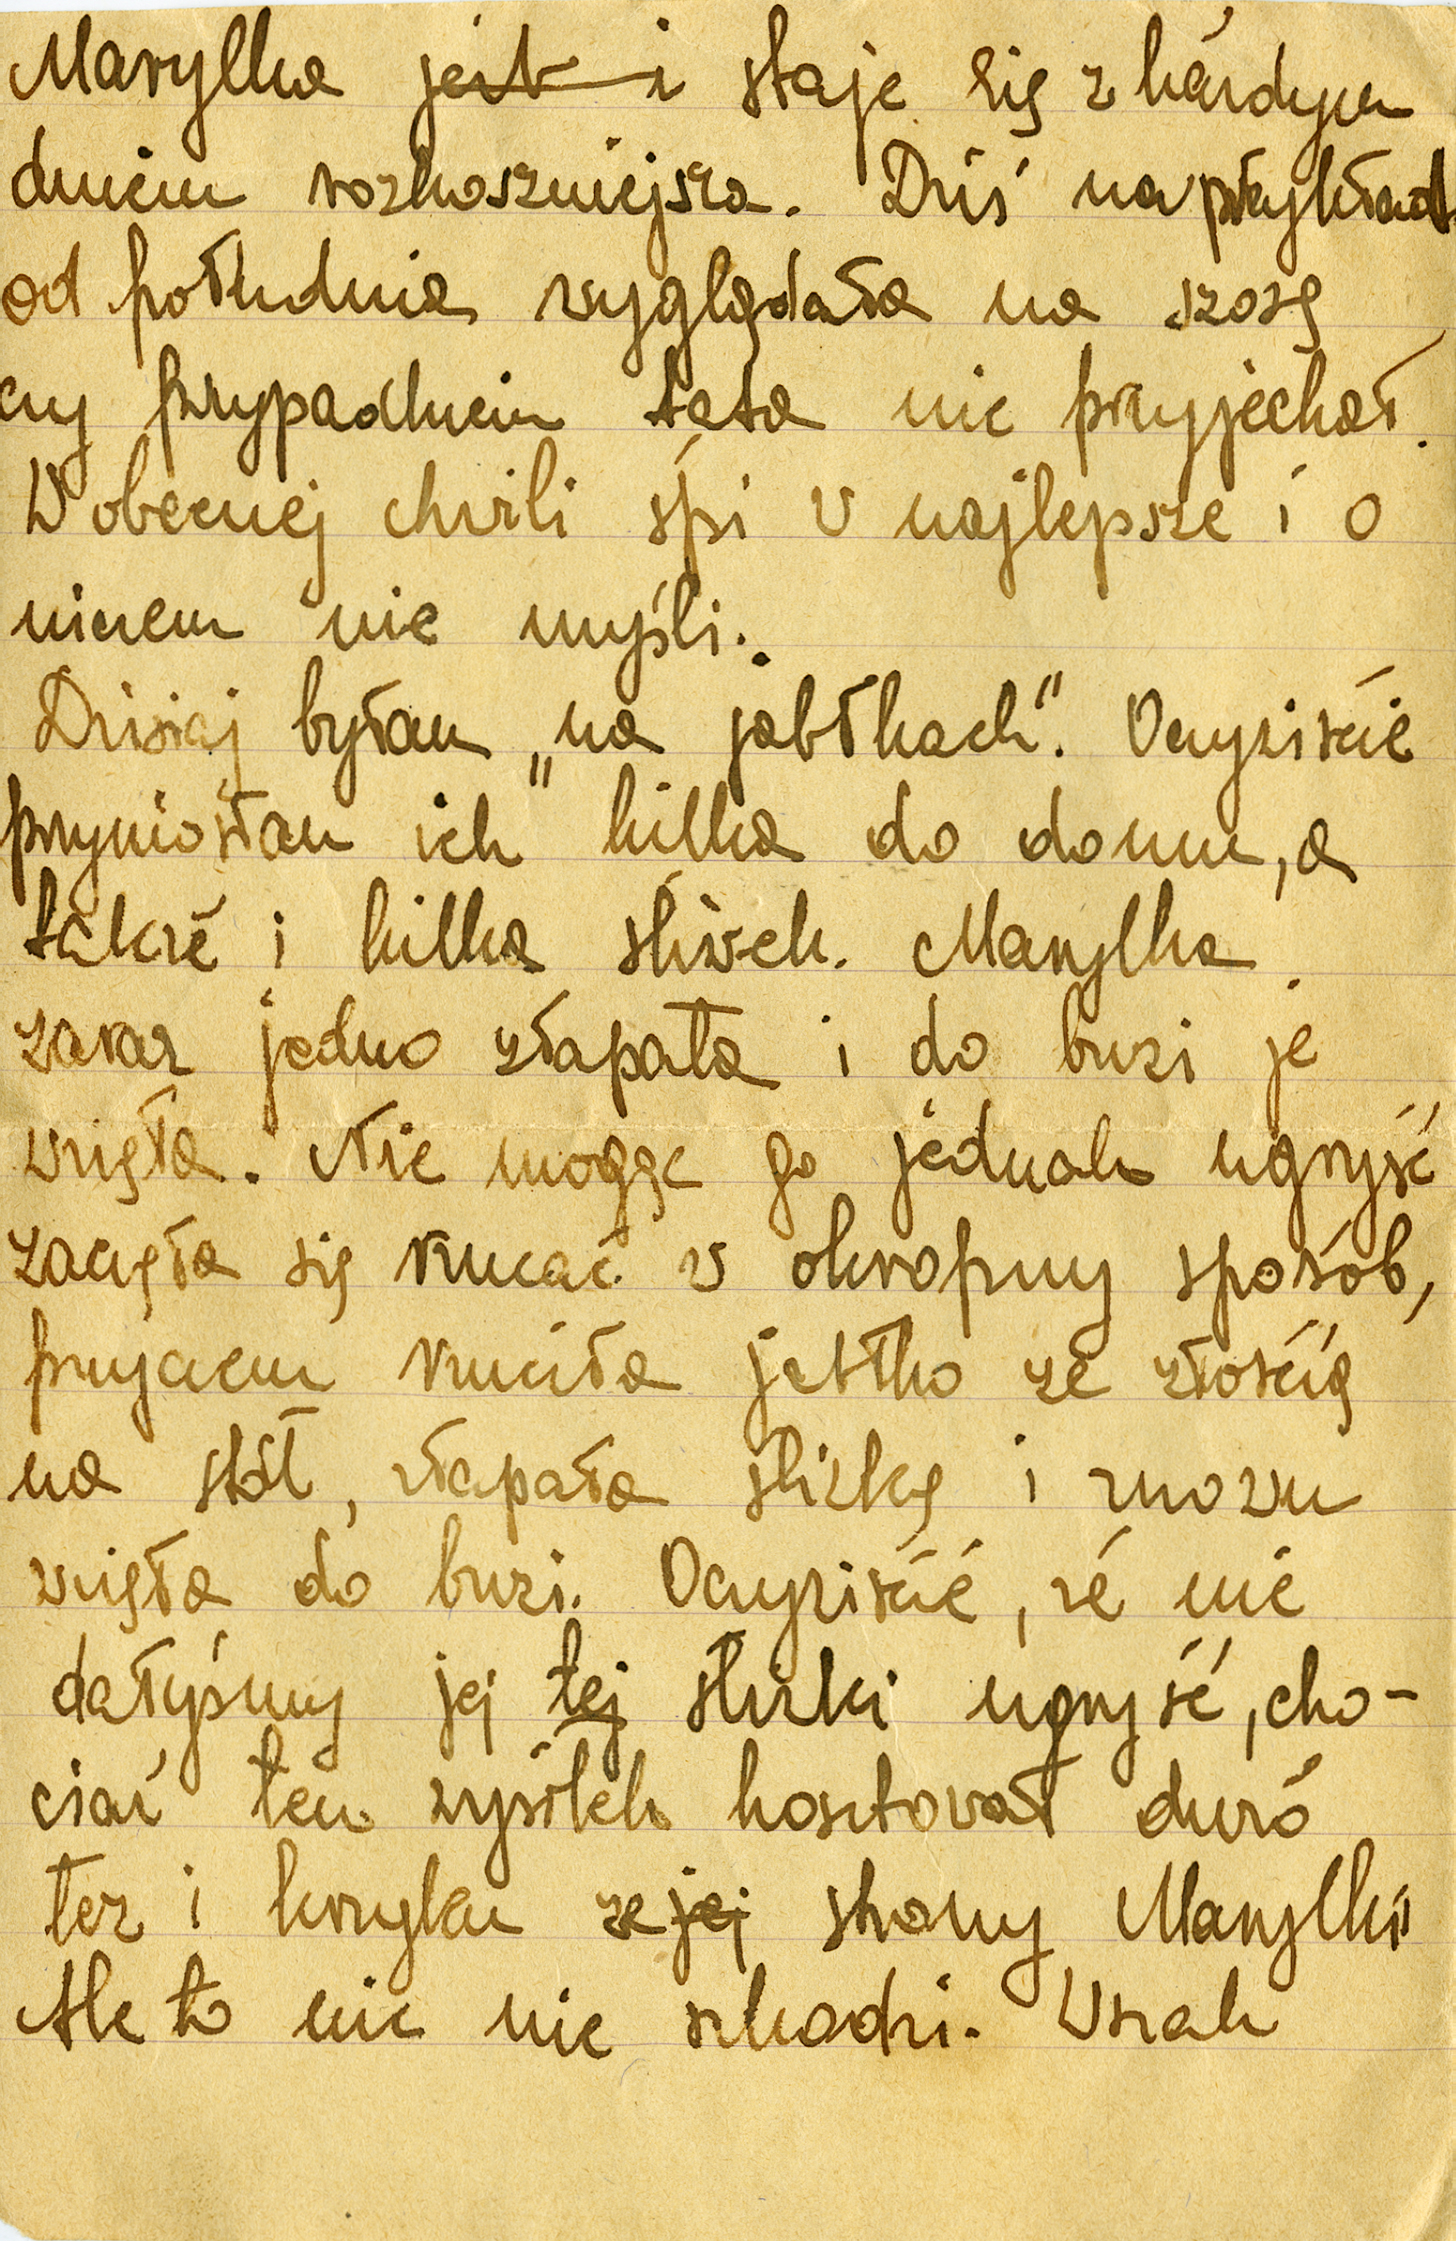 Marylka jest i staje się z każdym
dniem rozkoszniejsza. Dziś naprzykład
od południa wyglądała na szosę
czy przypadkiem tata nie przyjechał.
W obecnej chwili śpi w najlepsze i o
niczem nie myśli.
Dzisiaj byłam „na jabłkach". Oczywiście
przyniosłam ich kilka do domu, a
także i kilka śliwek. Marylka
zaraz jedno złapała i do buzi je
wzięła. Nie mogąc go jednak ugryść
zaczęła się rzucać w okropny sposób,
przyczem rzuciła jabłko ze złością
na stół, złapała śliwkę i znowu
wzięła do buzi. Oczywiście, że nie
dałyśmy jej tej śliwki ugryść, cho-
ciaż ten wysiłek kosztował dużo
łez i krzyku ze jej strony Marylki
Ale to nic nie szkodzi. Wszak